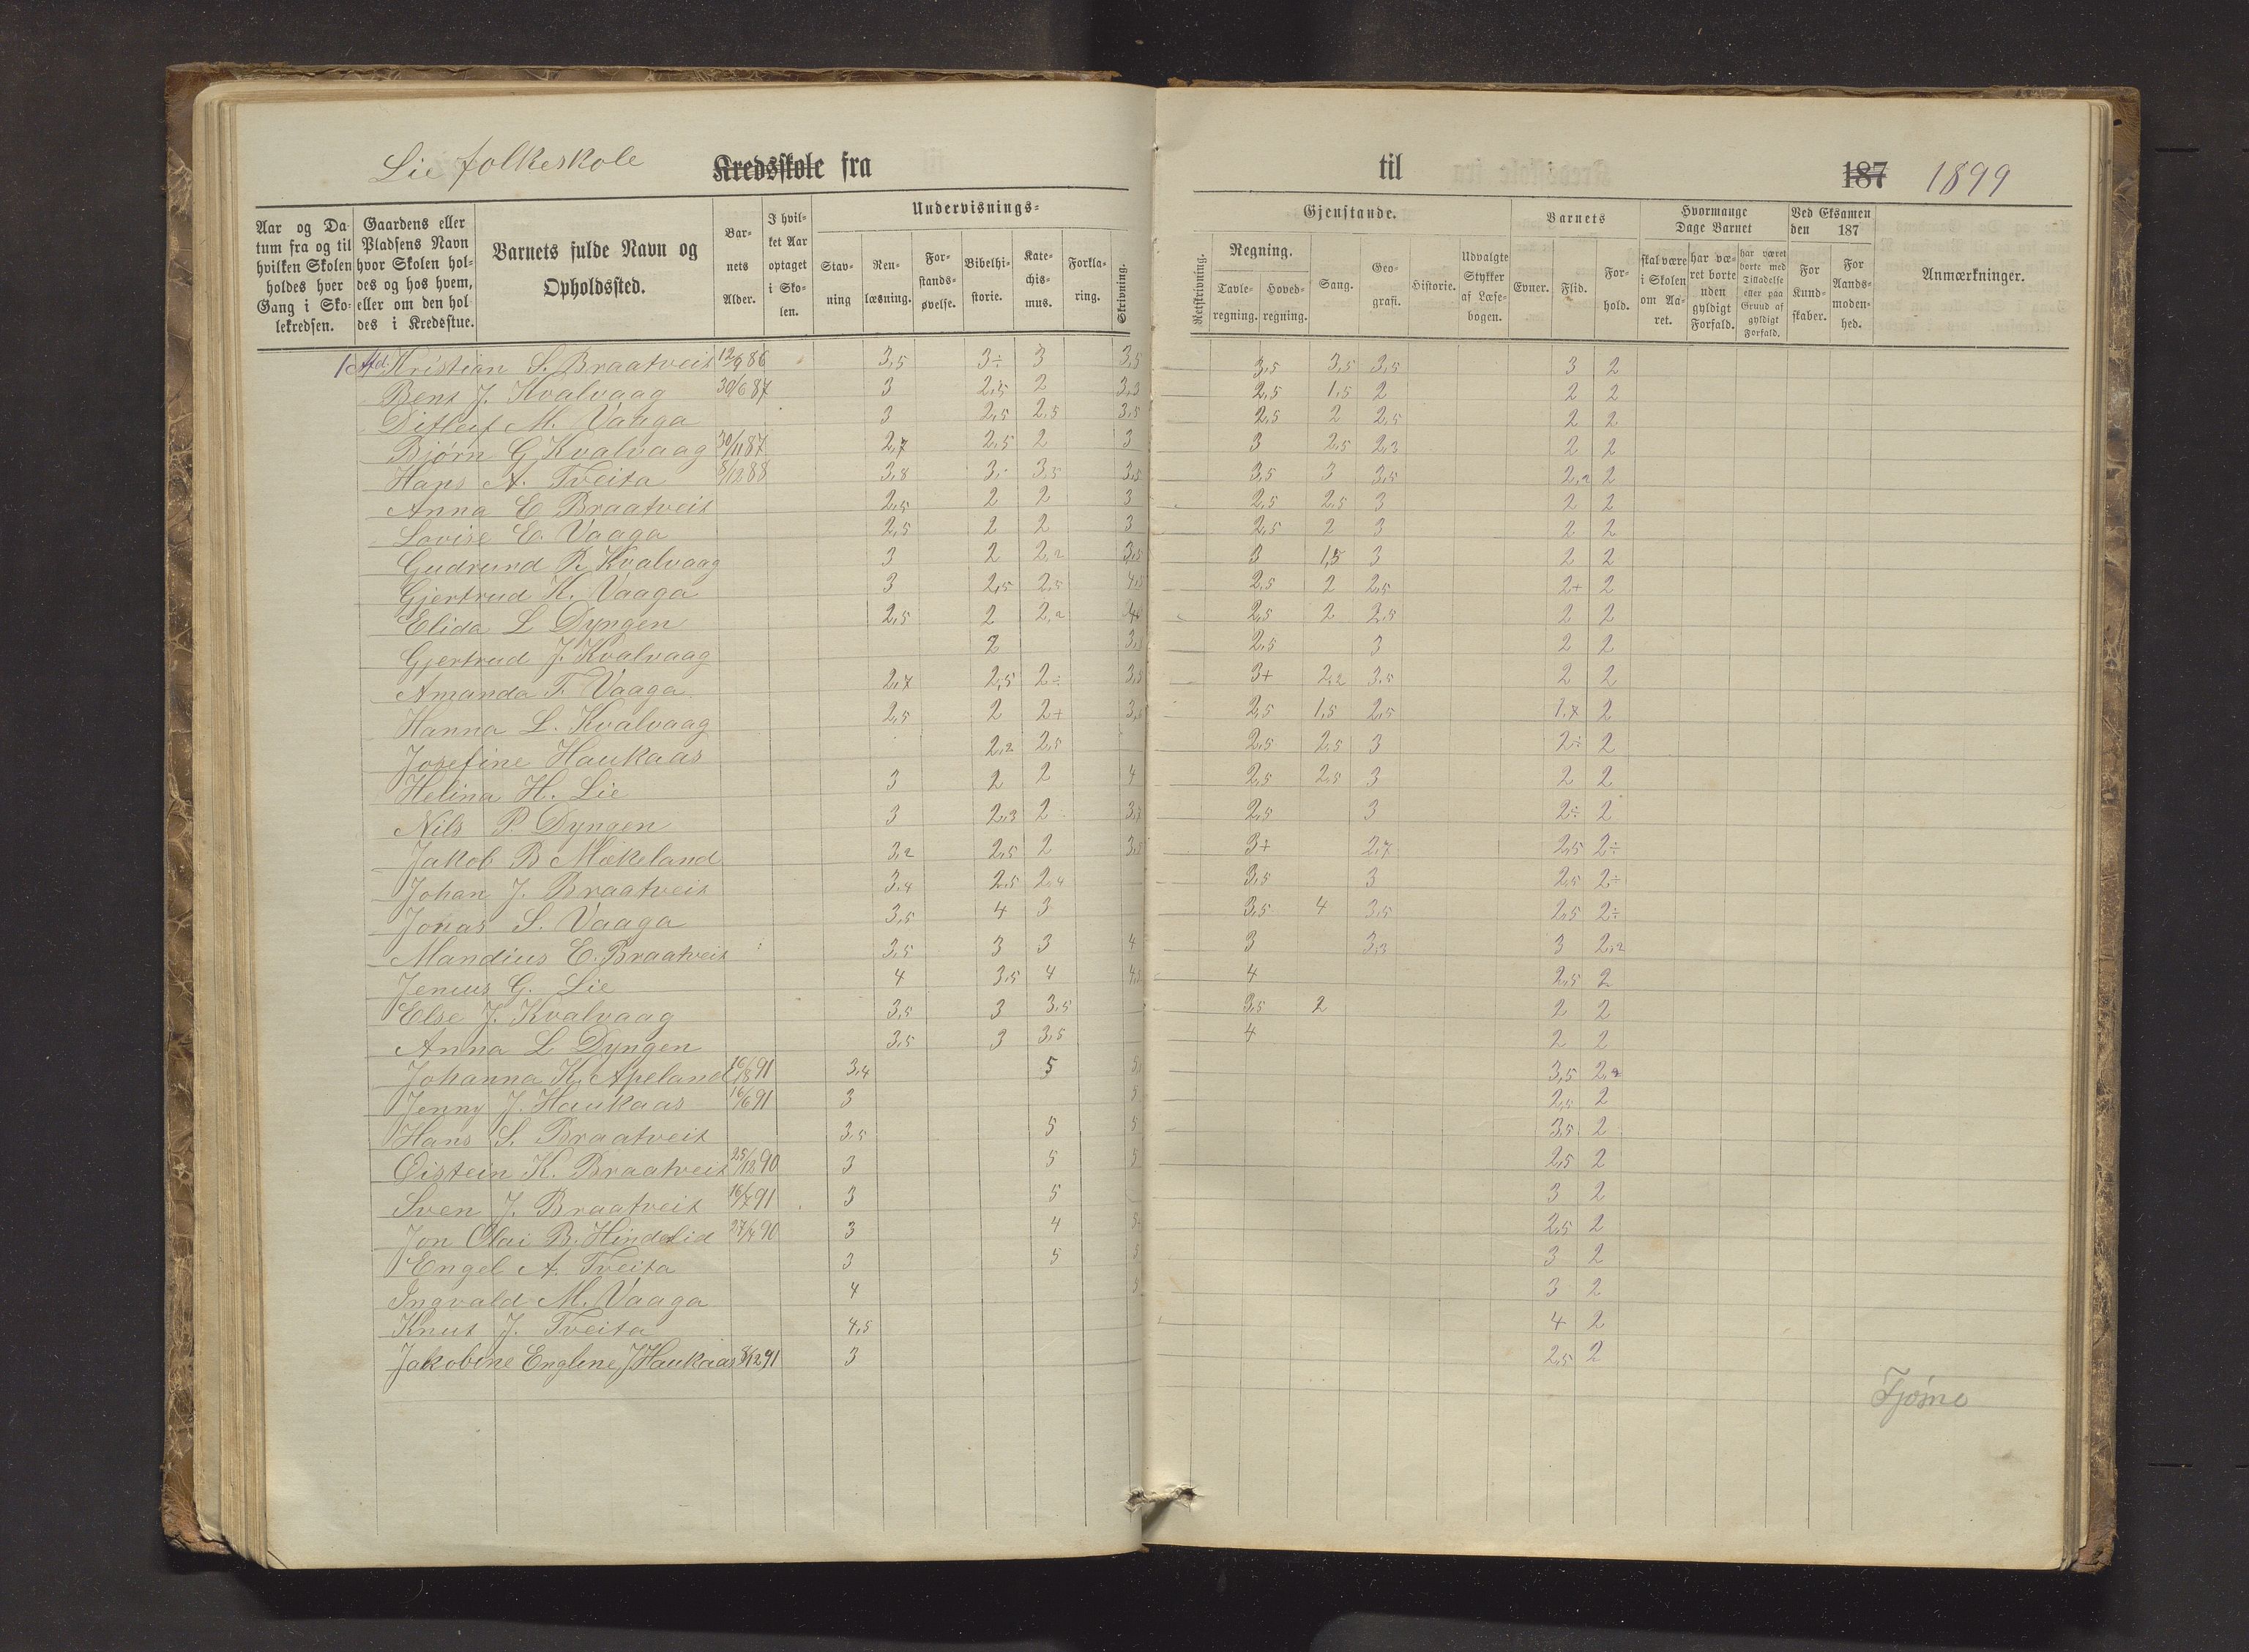 Lie folkeskole Kredsskole fra til 187 1899
Aar og Datum fra og til hvilken Skolen holdes hver Gang i Skolekredsen.
Gaardens eller Pladsens Navn hvor Skolen holdes og hos hvem, eller om den holdes i Kredsstue.
Barnets fulde Navn og Opholdssted.
Barnets Alder.
I hvilket Aar optaget i Skolen.
Undervisnings-
Stavning
Renlæsning.
Forstandsøvelse.
Bibelhistorie.
Katechismus.
Forklaring.
Skrivning.
Gjenstande.
Retskrivning.
Regning.
Tavleregning.
Hovedregning.
Sang.
Geografi.
Historie.
Udvalgte Stykker af Læsebogen.
Barnets
Evner.
Flid.
Forhold.
Hvormange Dage Barnet
skal være i Skolen om Aaret.
har været borte uden gyldigt Forfald.
har været borte med Tilladelse eller paa Grund af gyldigt Forfald.
Ved Eksamen den 187
For Kundskaber.
For Aandsmodenhed.
Anmærkninger.
1 Afd. Kristian S. Braatveit 12/9 86 3,5 3÷ 3 3,5 3,5 3,5 3,5 3 2
Bent J. Kvalvaag 30/6 87 3 2,5 2 3,3 2,5 1,5 2 2 2
Ditleif M. Vaaga 3 2,5 2,5 3,5 2,5 2 2,5 2 2
Bjørn G Kvalvaag 30/11 87 2,7 2,5 2 3 3 2,5 2,3 2 2
Hans A. Tveita 8/12 88 3,8 3,- 3,5 3,5 3,5 3 3,5 2,2 2
Anna E Braatveit 2,5 2 2 3 2,5 2,5 3 2 2
Lovise E. Vaaga 2,5 2 2 3 2,5 2 3 2 2
Gudrund R. Kvalvaag 3 2 2,2 3,5 3 1,5 3 2 2
Gjertrud K. Vaaga 3 2,5 2,5 4,5 2,5 2 2,5 2+ 2
Elida L Dyngen 2,5 2 2,2 4 2,5 2 2,5 2 2
Gjertrud J. Kvalvaag 2 3, 2,5 3 2 2
Amanda T. Vaaga 2,7 2,5 2÷ 3,5 3+ 2,2 3,5 2 2
Hanna L. Kvalvaag 2,5 2 2+ 3, 2,5 1,5 2,5 1,7 2
Josefine Haukaas 2,2 2,5 2,5 2,5 3 2÷ 2
Helina H. Lie 3 2 2 4 2,5 2,5 3 2 2
Nils P. Dyngen 3 2,3 2 3,5 2,5 3 2÷ 2
Jakob B Mækeland 3,2 2,5 2 3,5 3+ 2,7 2,5 2÷
Johan J. Braatveit 3,4 2,5 2,4 3,5 3 2,5 2÷
Jonas S. Vaaga 3,5 4 3 3,5 4 3,5 2,5 2÷
Mandius E. Braatveit 3,5 3 3 4 3 3,3 3 2,2
Jenius G. Lie 4 3,5 4 4, 4 2,5 2
Else J. Kvalvaag 3,5 3 3,5 3,5 2 2 2
Anna L Dyngen 3,5 3 3,5 4 2 2
Johanna K. Apeland 91 3,4 5 5 3,5 2,2
Jenny J. Haukaas 16/6 91 3 5 2,5 2
Hans S. Braatveit 3,5 5 5 3,5 2
Øistein K. Braatveit 25/12 90 3 5 5 2,5 2
Sven J. Braatveit 16/7 91 3 5 3 2
Jon Olai B. Hindelid 27/4 90 3 4 5 2,5 2
Engel A. Tveita 3 5 5 3 2
Ingvald M. Vaaga 4 5 3 2
Knut J. Tveita 4,5 4 2
Jakobine Engline J Haukaas 8/12 91 3 2,5 2